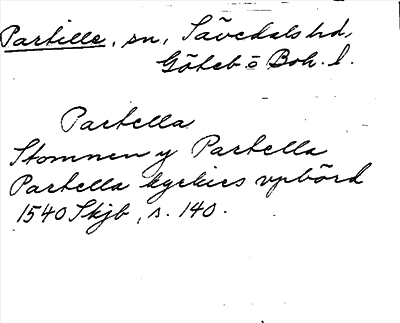 Partille, sn, Sävedals hd,
Göteb o Boh. l.
Partella
Stomnen y Partella
Partella kyrkies vpbörd
1540 Skjb, s. 140.